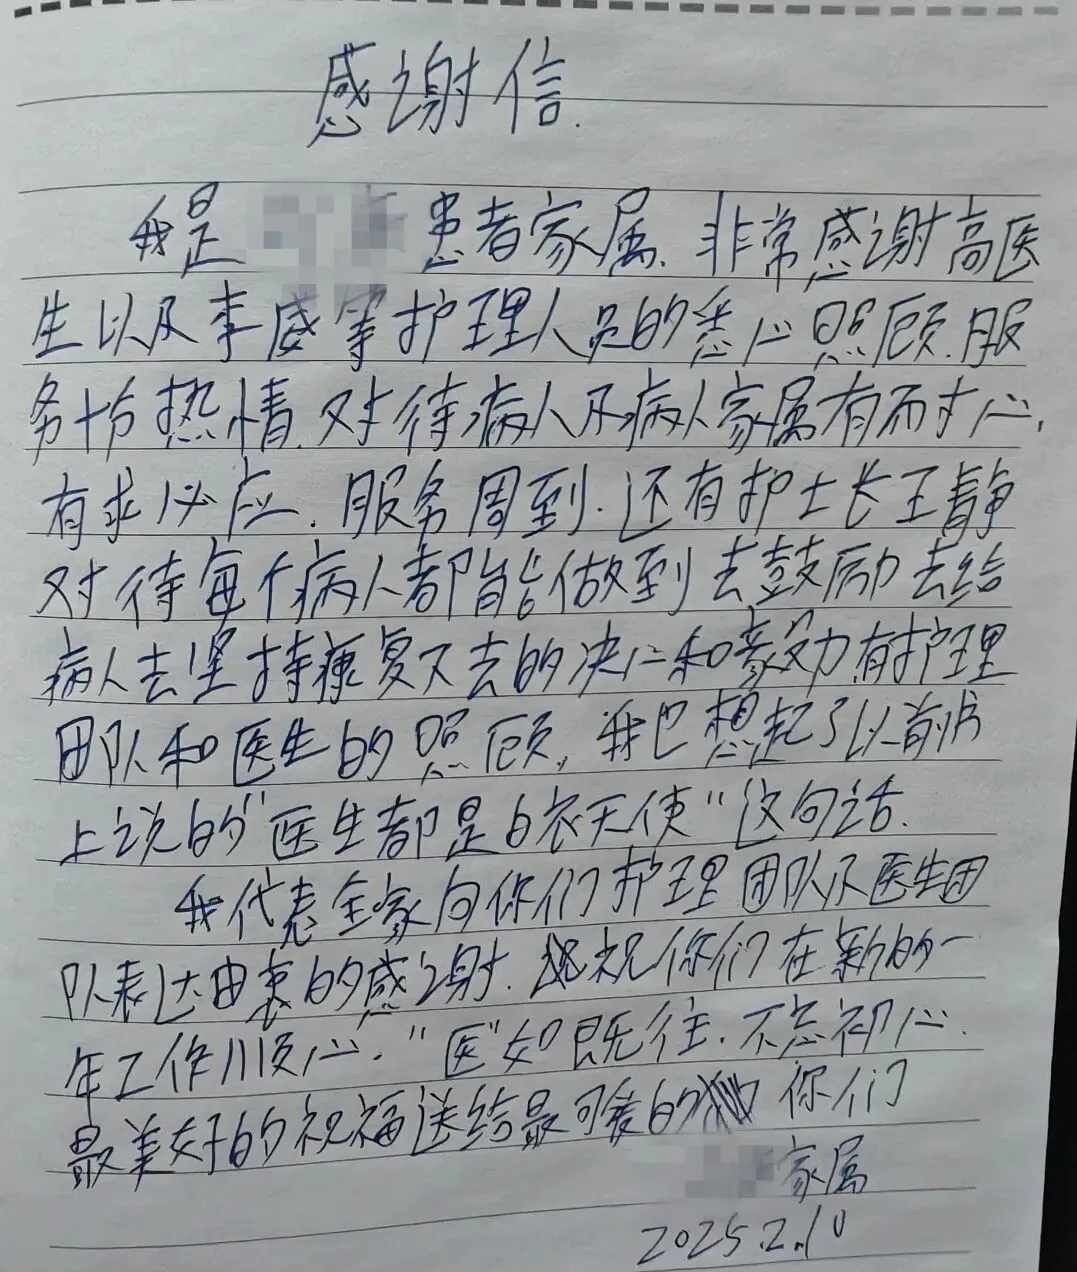 感谢信.
我是 患者家属、非常感谢高医
生以及李威等护理人员的悉心照顾.服
务十份热情.对待病人及病人家属有耐心,
有求必应.服务周到.还有护士长王静
对待每个病人都能做到去鼓励去给
病人去坚持康复下去的决心和毅力,有护理
团队和医生的照顾,我也想起了以前书
上说的“医生都是白衣天使”这句话.
我代表全家向你们护理团队及医生团
队表达由衷的感谢.祝你们在新的一
年工作顺心.“医”如既往.不忘初心.
最美好的祝福送给最可爱的你们
家属
2025.2.10